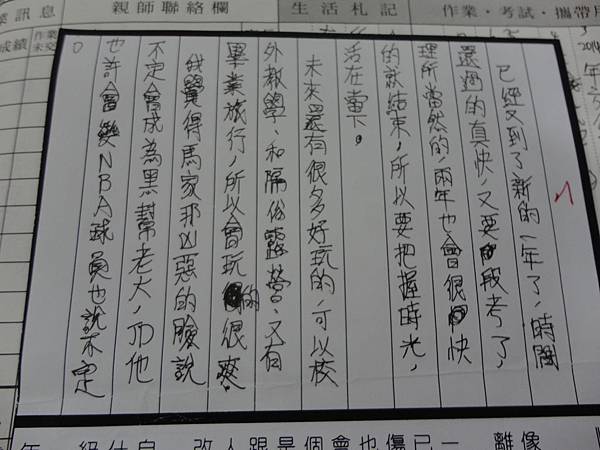 業訊息
親師聯絡欄
生活札記
作業·考試·攜帶用
成績
作業未交
已經又到了新的一年了,時間
還過的真快,又要段考了,
理所當然的,兩年也會很快
的就結束,所以要把握時光,
活在當下。
未來還有很多好玩的,可以校
外教學、和隔宿露營、又有
畢業旅行,所以會玩的很爽
我覺得馬家那凶惡的臉說
不定會成為黑幫老大,而他
也許會變NBA球員也說不定
。
年 級什自 改人跟是個會也傷已一 離像